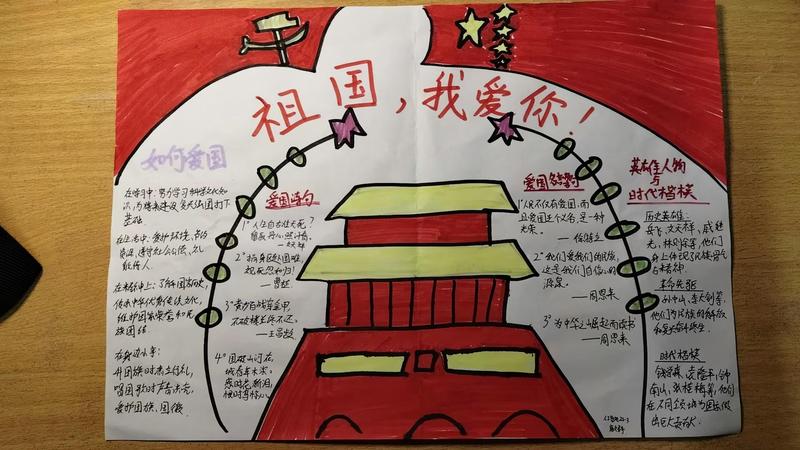 祖国，我爱你！
如何爱国
在学习中：努力学习科学文化知
识，为将来建设美丽祖国打下
基础
在生活中：爱护环境、节约
资源、遵守社会公德、礼
貌待人
在精神上：了解国家历史，
传承中华优秀传统文化，
维护国家荣誉和民
族团结
在身边小事：
升国旗时肃立行礼，
唱国歌时声音洪亮，
爱护国旗、国徽
爱国诗句
1°人生自古谁无死？
留取丹心照汗青。
——文天祥
2°捐躯赴国难，
视死忽如归！
——曹植
3°黄沙百战穿金甲，
不破楼兰终不还。
——王昌龄
4°国破山河在，
城春草木深。
感时花溅泪，
恨别鸟惊心。
爱国名言
1°人不仅有爱国，而
且爱国主义名，是一种
光荣。
——徐特立
2°我们爱我们的民族，
这是我们自信心的
源泉。
——周恩来
3°为中华之崛起而读书
——周恩来
英雄人物
与
时代楷模
历史英雄：
岳飞，文天祥，戚继
光，林则徐等，他们
身上体现了民族气节
与精神.
革命先驱
孙中山，李大钊等，
他们为民族的解放
和
时代楷模
钱学森，袁隆平，钟
南山，张桂梅等，他们
在不同领域为国家做
出巨大贡献.